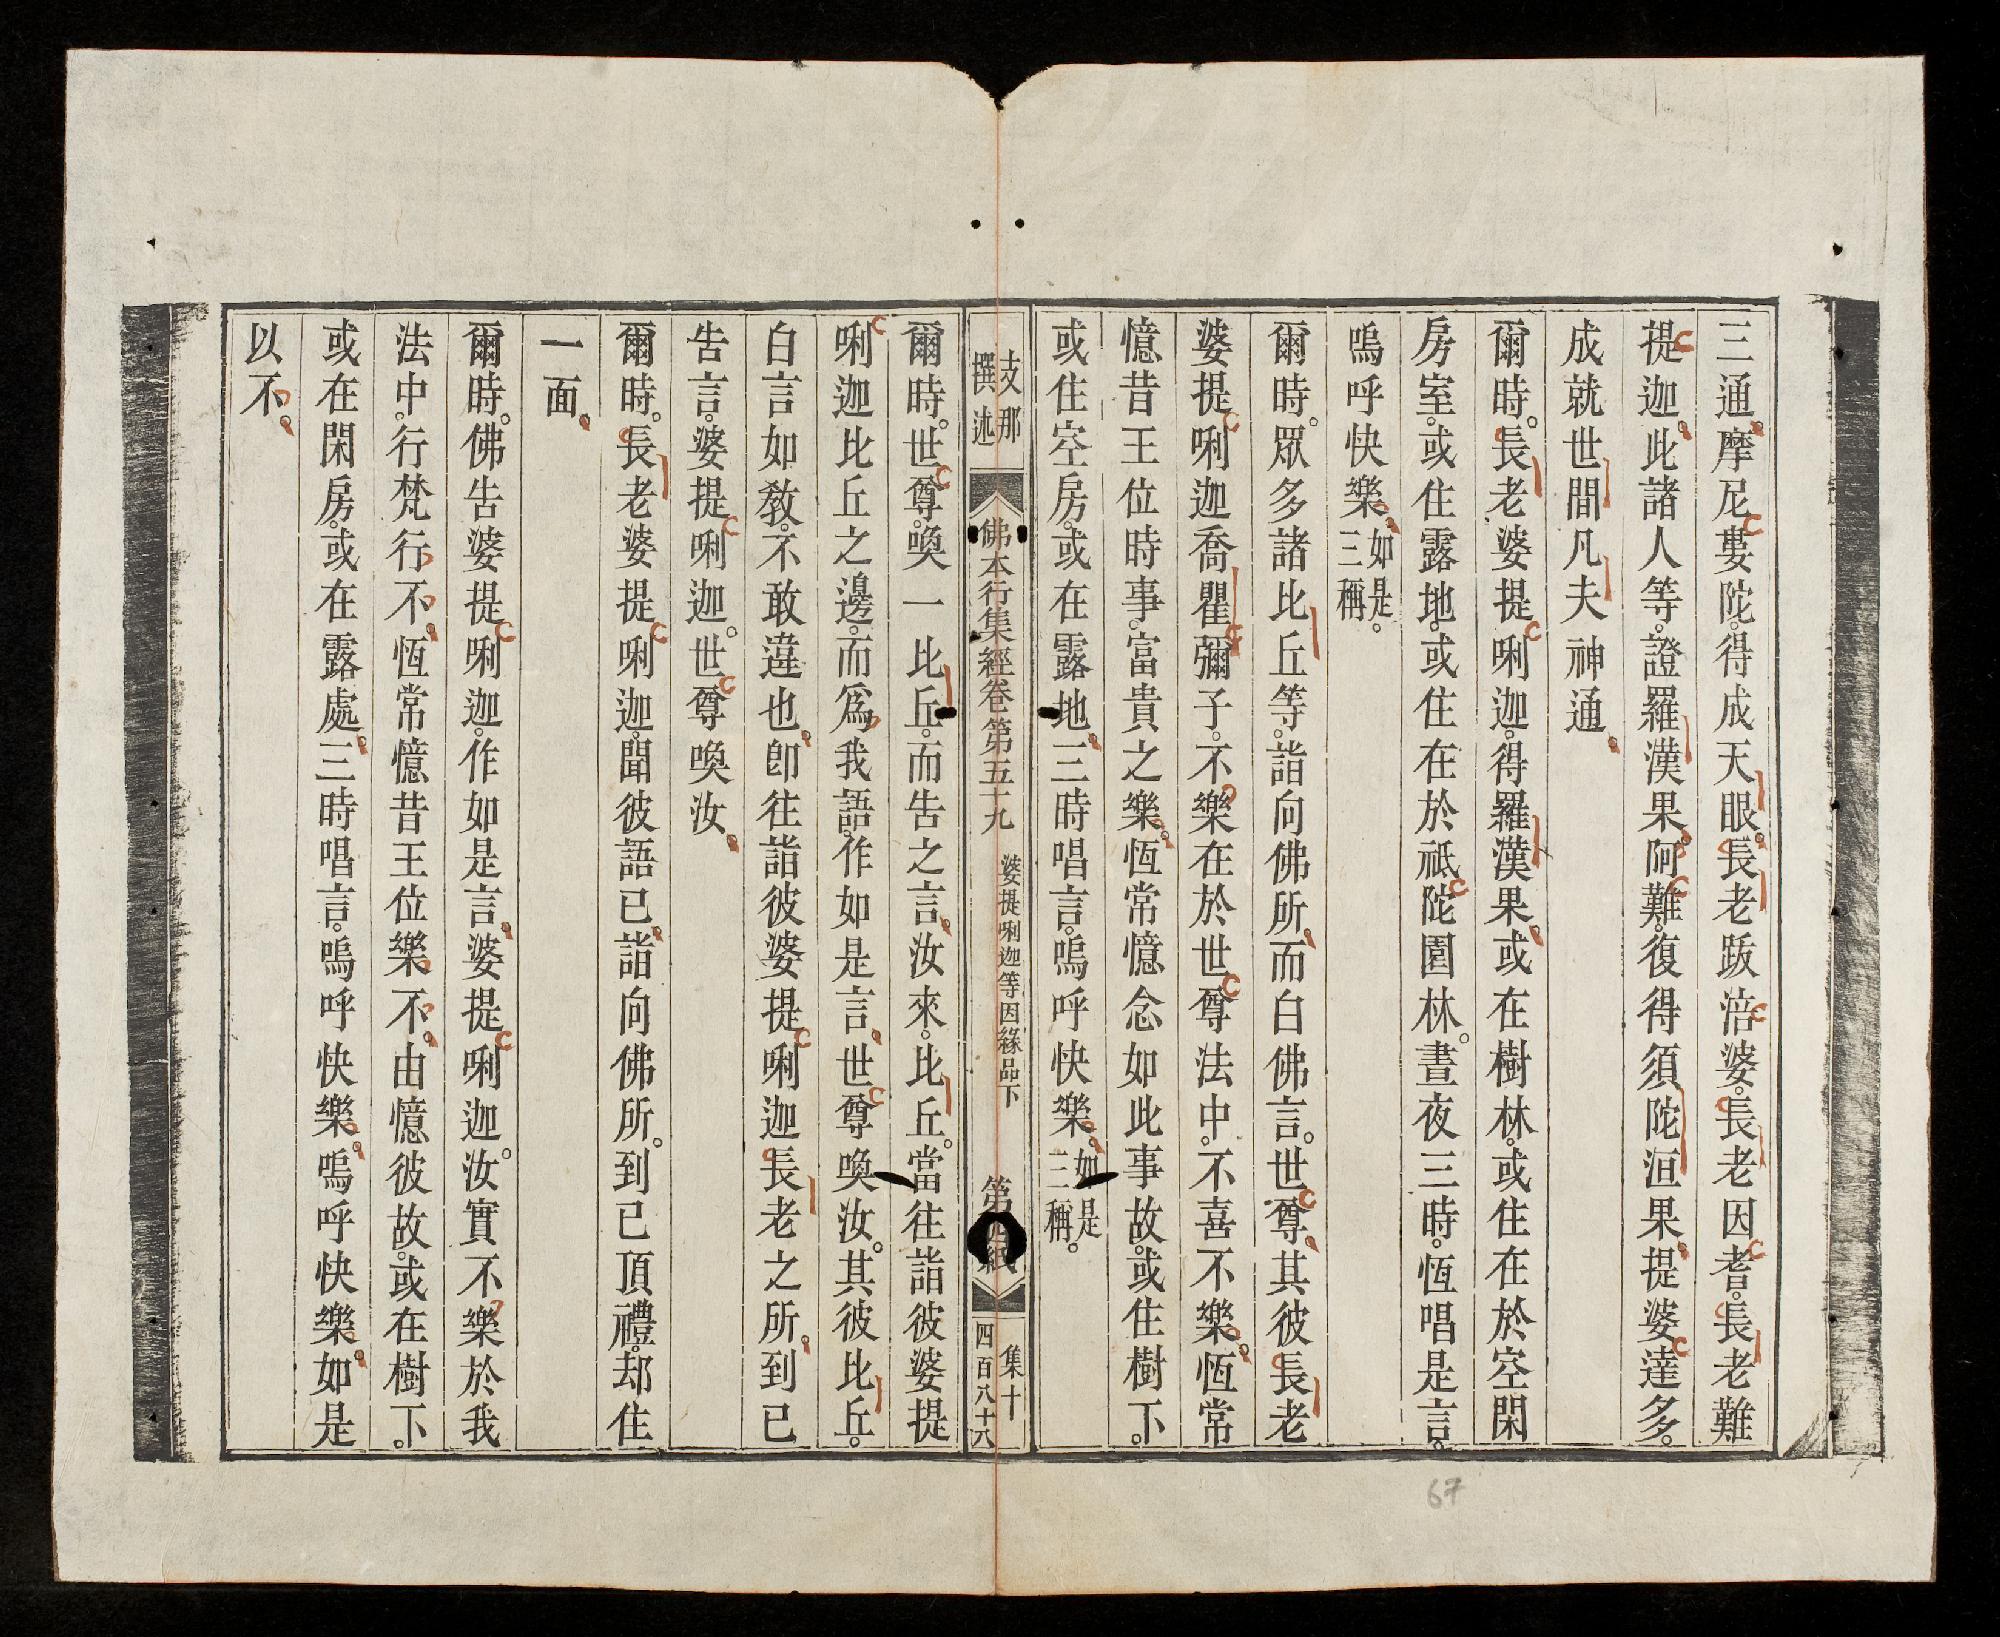 三通。摩尼婁陀。得成天眼。長老跋涪婆。長老因耆。長老難
提迦。此諸人等。證羅漢果。阿難。復得須陀洹果。提婆達多。
成就世間凡夫神通。
爾時。長老婆提唎迦。得羅漢果。或在樹林。或住在於空閑
房室。或住露地。或住在於祇陀園林。晝夜三時。恆唱是言。
嗚呼快樂。如是三稱。
爾時。眾多諸比丘等。詣向佛所。而白佛言。世尊。其彼長老
婆提唎迦喬瞿彌子。不樂在於世尊法中。不喜不樂。恆常
憶昔王位時事。富貴之樂。恆常憶念如此事故。或住樹下。
或住空房。或在露地。三時唱言。嗚呼快樂。如是三稱。
支那撰述
佛本行集經卷第五十九
婆提唎迦等因緣品下
第四紙
集十
四百八十八
爾時。世尊。喚一比丘。而告之言。汝來。比丘。當往詣彼婆提
唎迦比丘之邊。而爲我語。作如是言。世尊喚汝。其彼比丘。
白言如教。不敢違也。卽往詣彼婆提唎迦長老之所。到已
告言。婆提唎迦。世尊喚汝。
爾時。長老婆提唎迦。聞彼語已。詣向佛所。到已頂禮。却住
一面。
爾時。佛告婆提唎迦。作如是言。婆提唎迦。汝實不樂於我
法中。行梵行不。恆常憶昔王位樂不。由憶彼故。或在樹下。
或在閑房。或在露處。三時唱言。嗚呼快樂。嗚呼快樂。如是
以不。
67